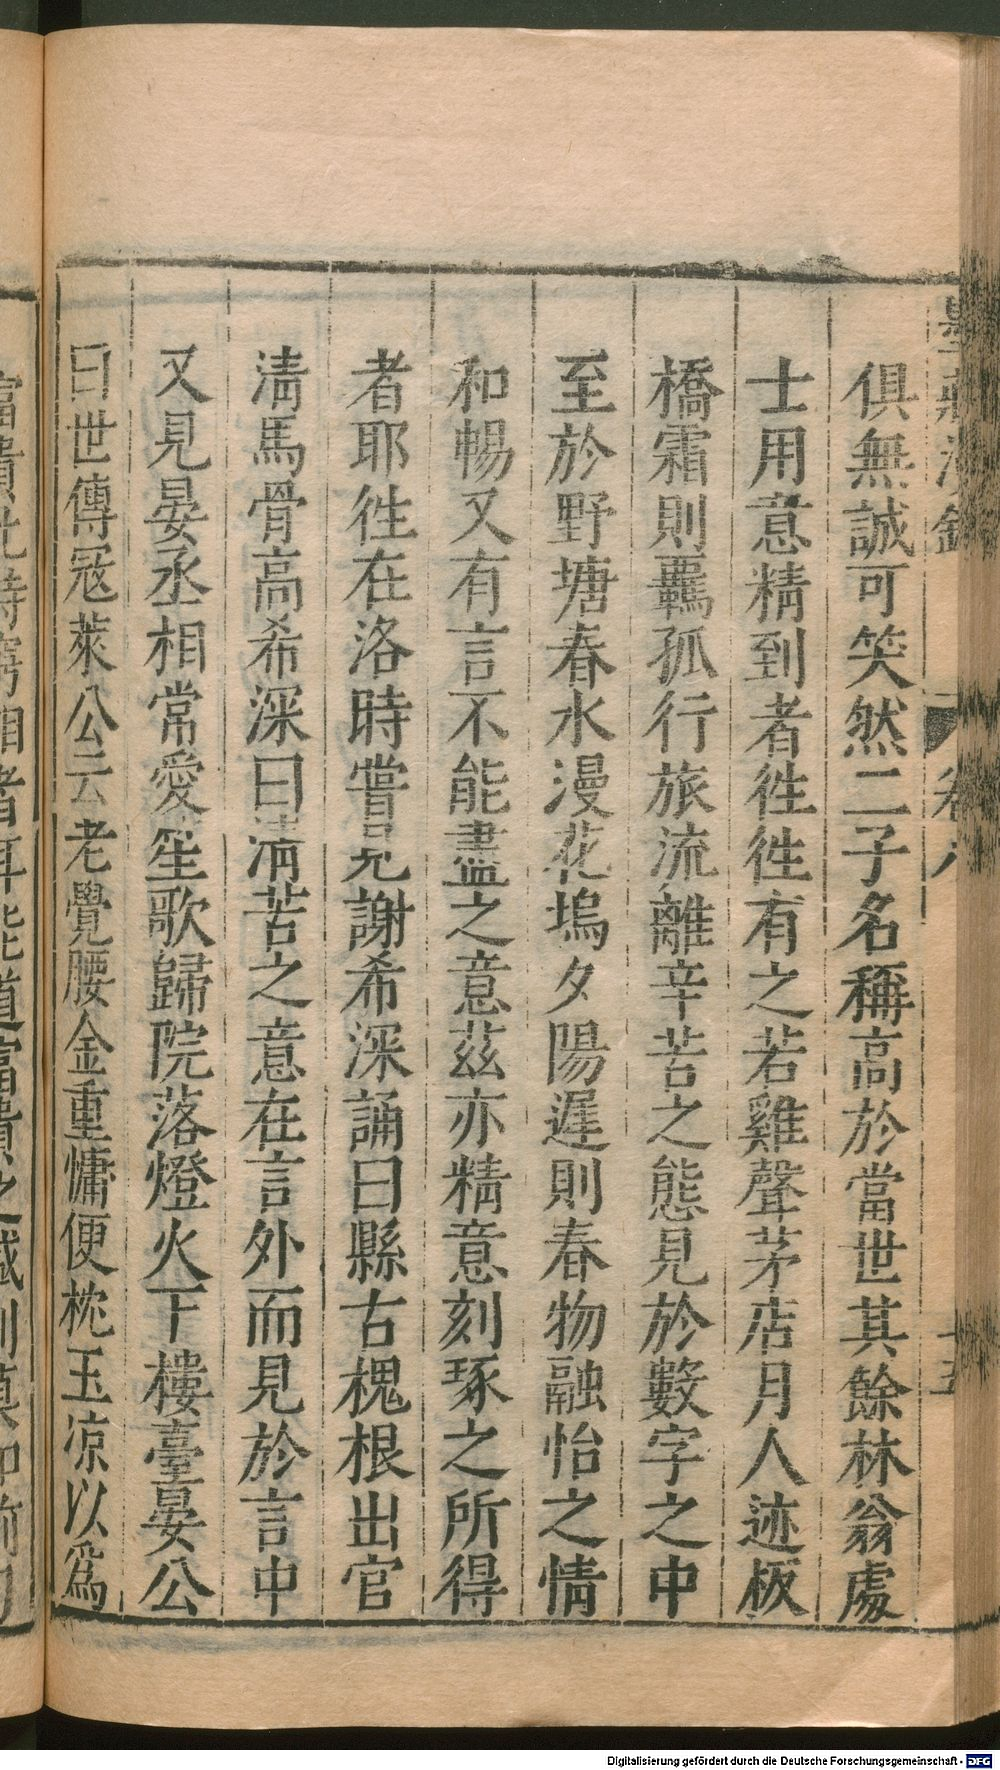 俱無誠可笑然二子名稱高於當世其餘林翁處
士用意精到者徃徃有之若雞聲茅店月人迹板
橋霜則羈孤行旅流離辛苦之態見於數字之中
至於野塘春水漫花塢夕陽遲則春物融怡之情
和暢又有言不能盡之意茲亦精意刻琢之所得
者耶徃在洛時嘗見謝希深誦曰縣古槐根出官
清馬骨高希深曰清苦之意在言外而見於言中
又見晏丞相常愛笙歌歸院落燈火下樓臺晏公
曰世傳冦萊公云老覺腰金重慵便枕玉凉以爲
Digitalisierung gefördert durch die Deutsche Forschungsgemeinschaft - DFG